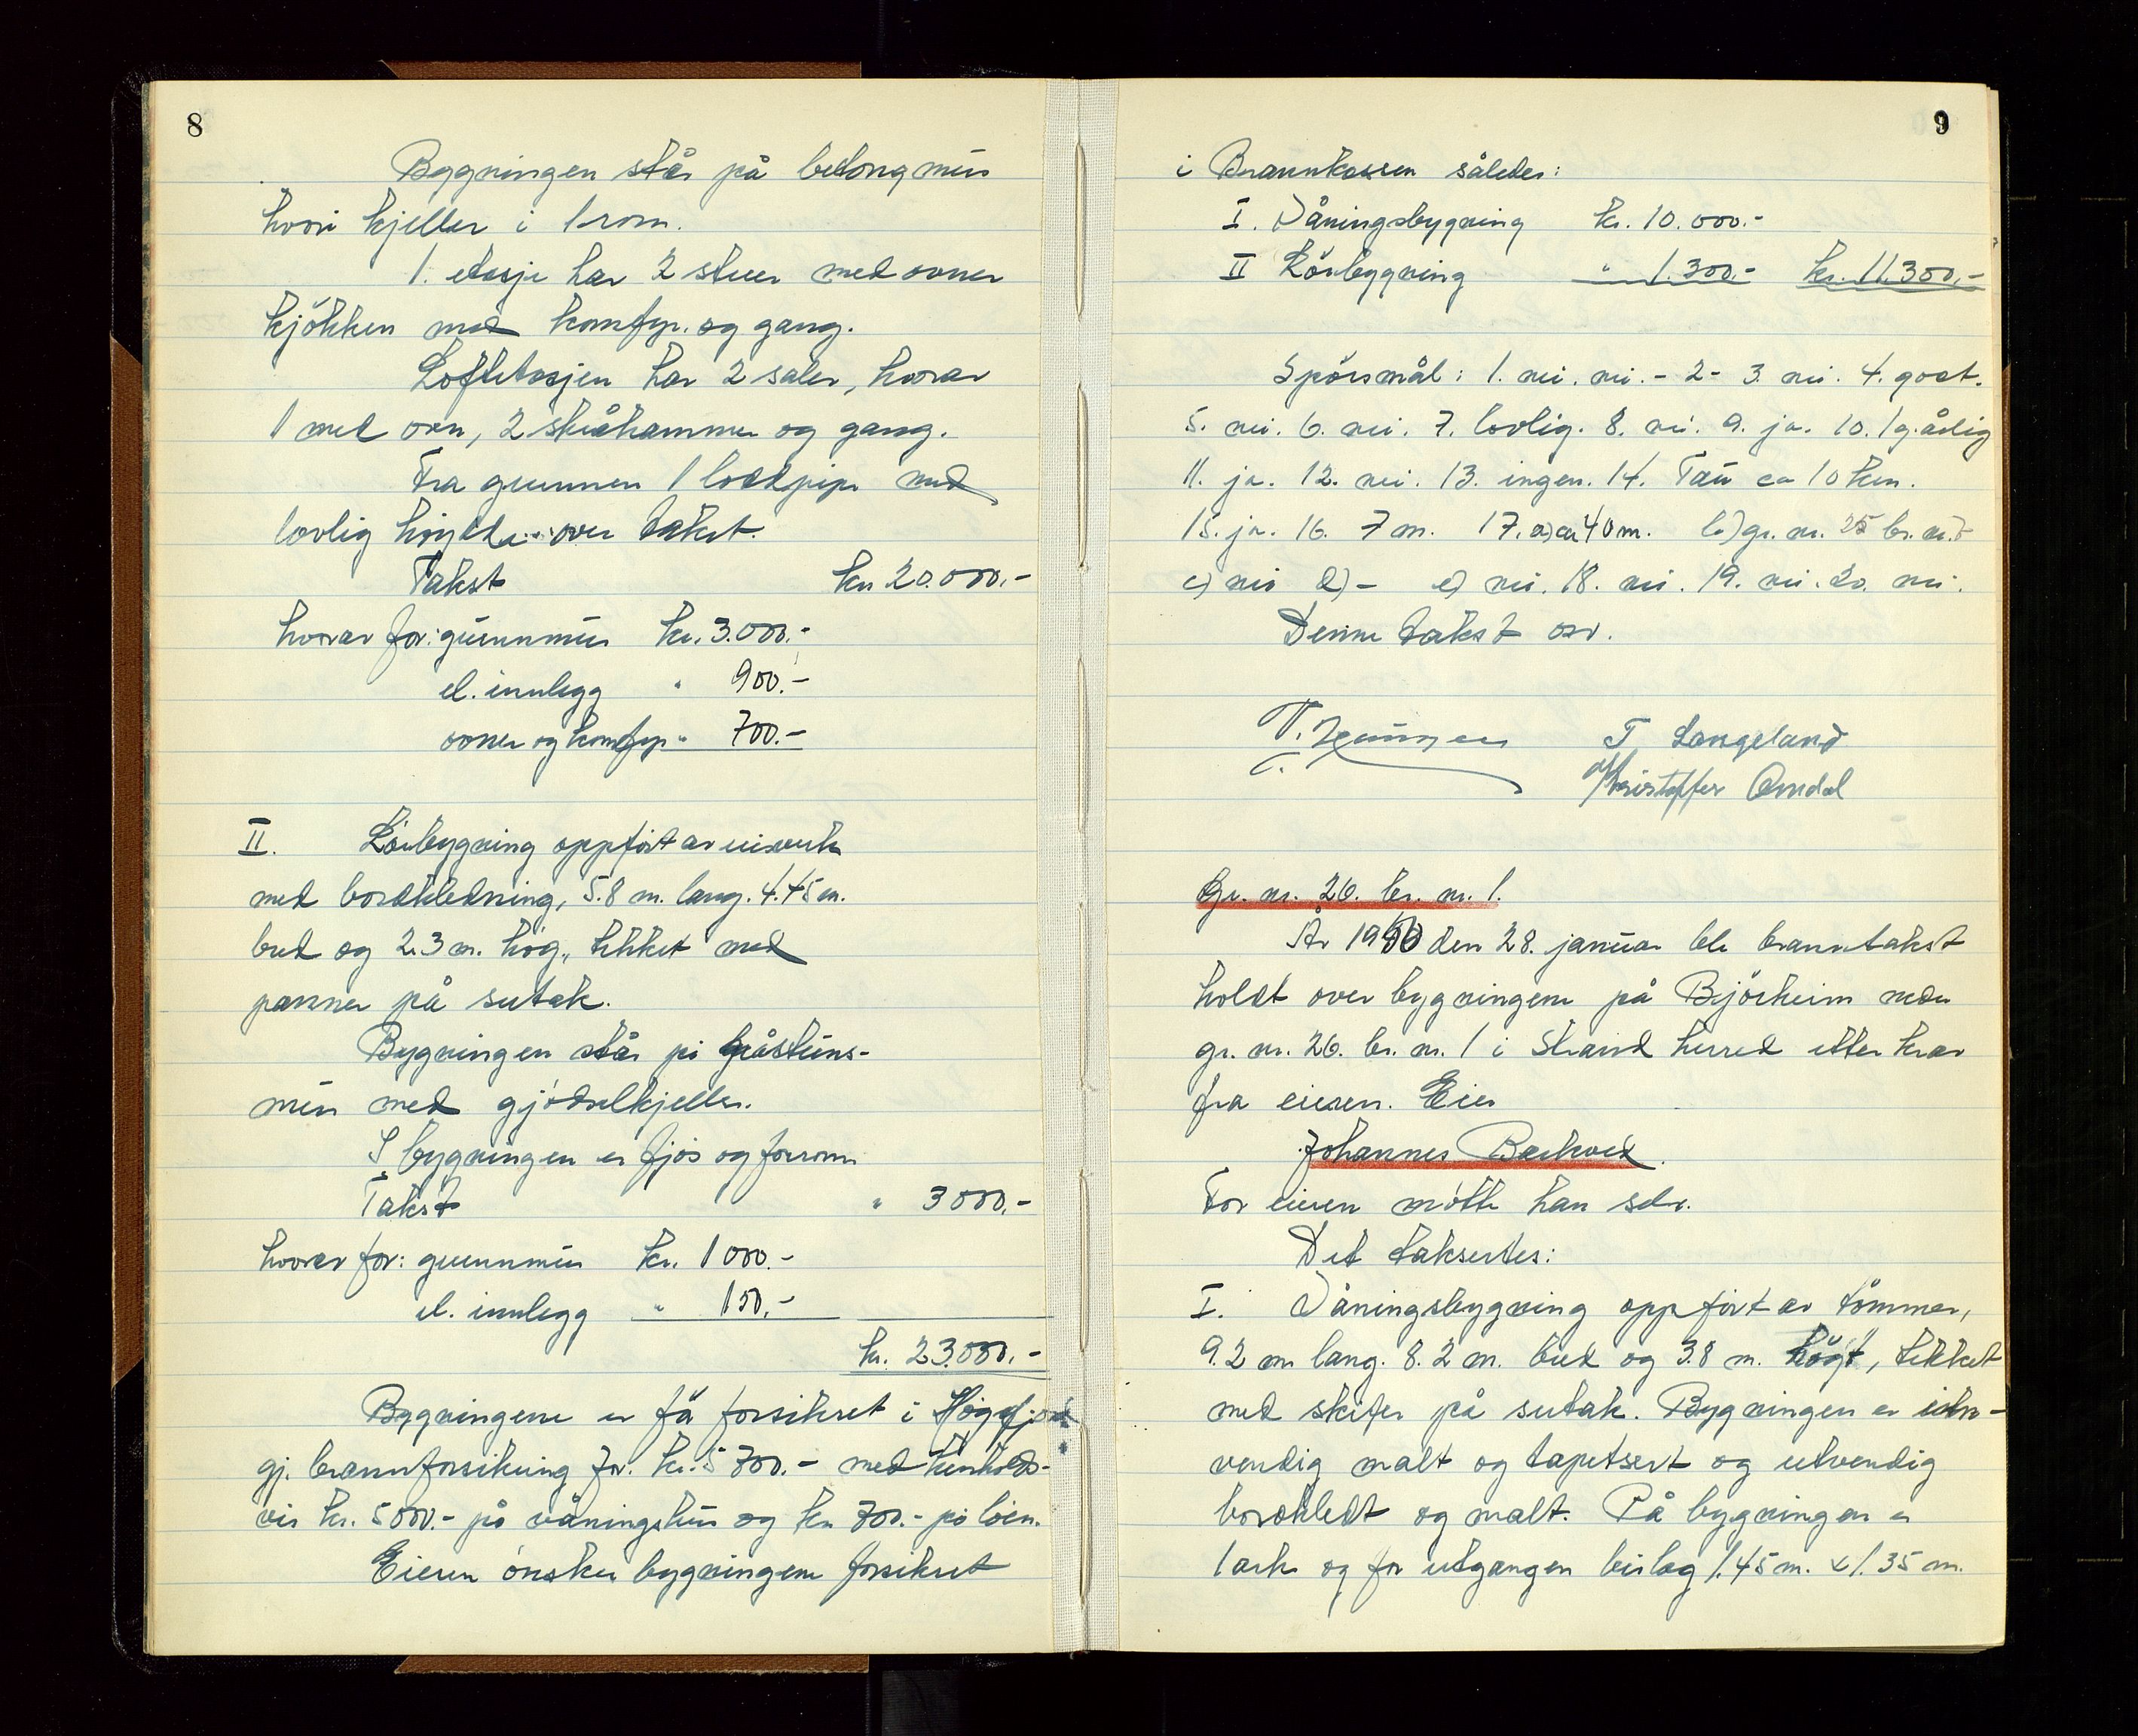 8
Bygningen står på betongmur
hvori kjeller i 1 rom.
1. etasje har 2 stuer med ovner
kjökken med komfyr. og gang.
Loftetasjen har 2 saler, hvorav
1 med ovn, 2 skråkammer og gang.
Fra grunnen 1 loddpipe med
lovlig höyde over taket.
Takst kr 20.000.-
hvorav for: grunnmur kr. 3.000.-
el. innlegg " 900.-
ovner og komfyr " 700.-
II. Löebygning oppfört av reisverk
med bordkledning, 5.8 m. lang. 4.45 m.
bred og 2.3 m. hög, tekket med
panner på sutak.
Bygningen står på gråsteins-
mur med gjödselkjeller.
I bygningen er fjös og forrom
Takst " 3000.-
hvorav for: grunnmur kr. 1000.-
el. innlegg " 150.-
kr. 23.000.-
Bygningene er för forsikret i Högsfjord
gj. brannforsikring for. kr. 5700.- med henholds-
vis kr. 5000.- på våningshus og kr 700.- på löen.
Eieren önsker bygningene forsikret
9
i Brannkassen således:
I. Våningsbygning kr. 10.000.-
II Löebygning " 1.300.- kr. 11.300.-
Spörsmål: 1. nei. nei. - 2 - 3. nei. 4. godt.
5. nei. 6. nei. 7. lovlig. 8. nei. 9. ja. 10. 1 g. årlig
11. ja. 12. nei. 13. ingen. 14. Tau ca 10 km.
15. ja. 16. 7 m. 17. a) ca 40 m. b) gr. nr. 25 br. nr.
c) nei d) - e) nei. 18. nei. 19. nei. 20. nei.
Denne takst osv.
T. Langeland
Kristoffer Omdal
Gr. nr. 26. br. nr. 1.
År 1950 den 28. januar ble branntakst
holdt over bygningene på Björheim nedre
gr. nr. 26. br. nr. 1 i Strand herred etter krav
fra eieren. Eier
Johannes Barkved.
For eieren mötte han selv.
Det taksertes:
I. Våningsbygning oppfört av tömmer,
9.2 m lang. 8.2 m. bred og 3.8 m. högt, tekket
med skifer på sutak. Bygningen er inn-
vendig malt og tapetsert og utvendig
bordkledt og malt. På bygningen er
1 ark og for utgangen bislag 1.45 m. x 1.35 m.